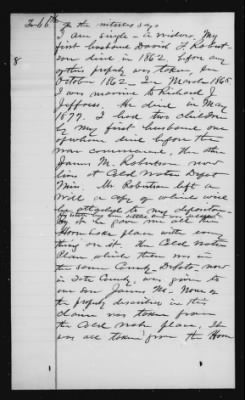 To 6th the witness says
8
I am single - a widow. My
first husband David F. Robert-
son died in 1862. before any
of this property was taken, in
October 1862. In March 1865
I was married to Richard J
Jeffress. He died in May
1877. I had two children
by my first husband one
of whom died before the
war commenced. the other
James M. Robertson now
lives at Cold Water Depot
Miss. Mr Robertson left a
Will a copy of which will
be attached to my deposition.
By it he gave me all the
Horn Lake place with every
thing on it. The Cold Water
Place which then was in
the same County - DeSoto, now
in Tate County, was given to
our son James M. None of
the property described in this
claim was taken from
the Cold Water place. It
was all taken from the Horn